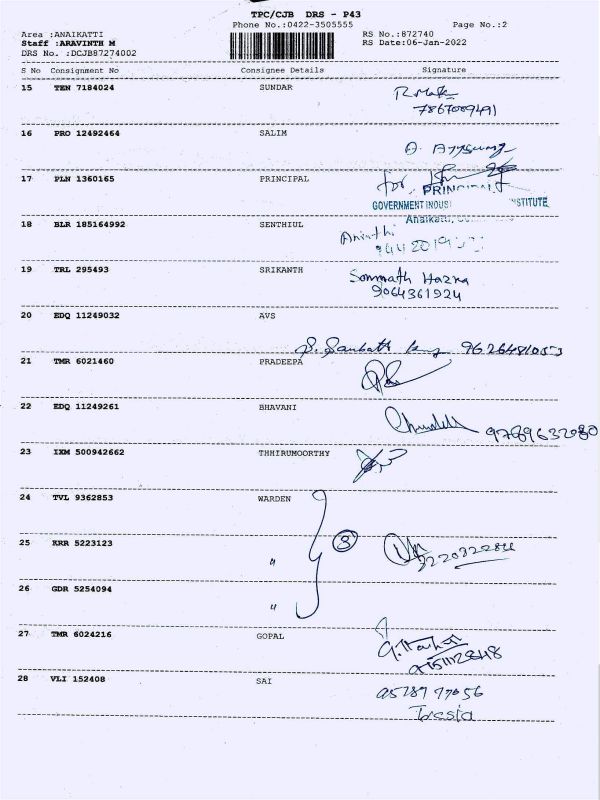 TPC/CJB DRS - P43
Phone No.:0422-3505555 Page No.:2
Area :ANAIKATTI RS No.:872740
Staff :ARAVINTH M RS Date:06-Jan-2022
DRS No. :DCJB87274002
S No Consignment No Consignee Details Signature
15 TEN 7184024 SUNDAR
7867009491
16 PRO 12492464 SALIM
17 PLN 1360165 PRINCIPAL for
PRINCIPAL
GOVERNMENT INDUS STITUTE
Anaikatti,
18 BLR 185164992 SENTHIUL
19 TRL 295493 SRIKANTH Sommath Hazra
9064361924
20 EDQ 11249032 AVS
9626481053
21 TMR 6021460 PRADEEPA
22 EDQ 11249261 BHAVANI
9789632080
23 IXM 500942662 THHIRUMOORTHY
24 TVL 9362853 WARDEN
25 KRR 5223123 " 3
26 GDR 5254094 "
27 TMR 6024216 GOPAL
28 VLI 152408 SAI